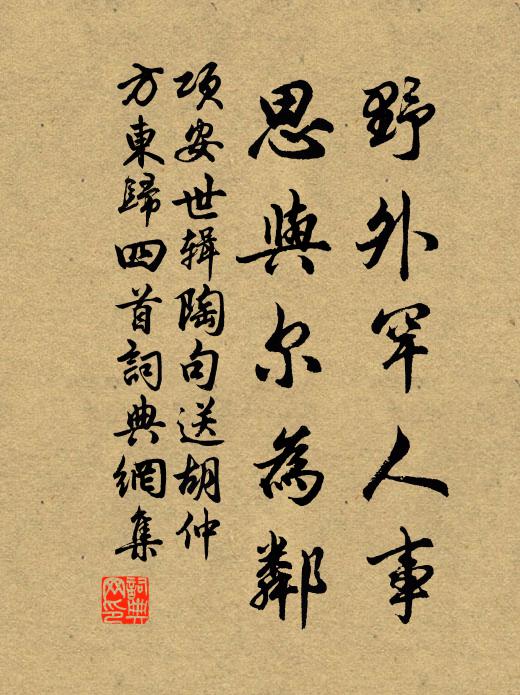 野外罕人事
思與尔為鄰
項安世辑陶句送胡仲
方東歸四首詞典網集
詞典网印